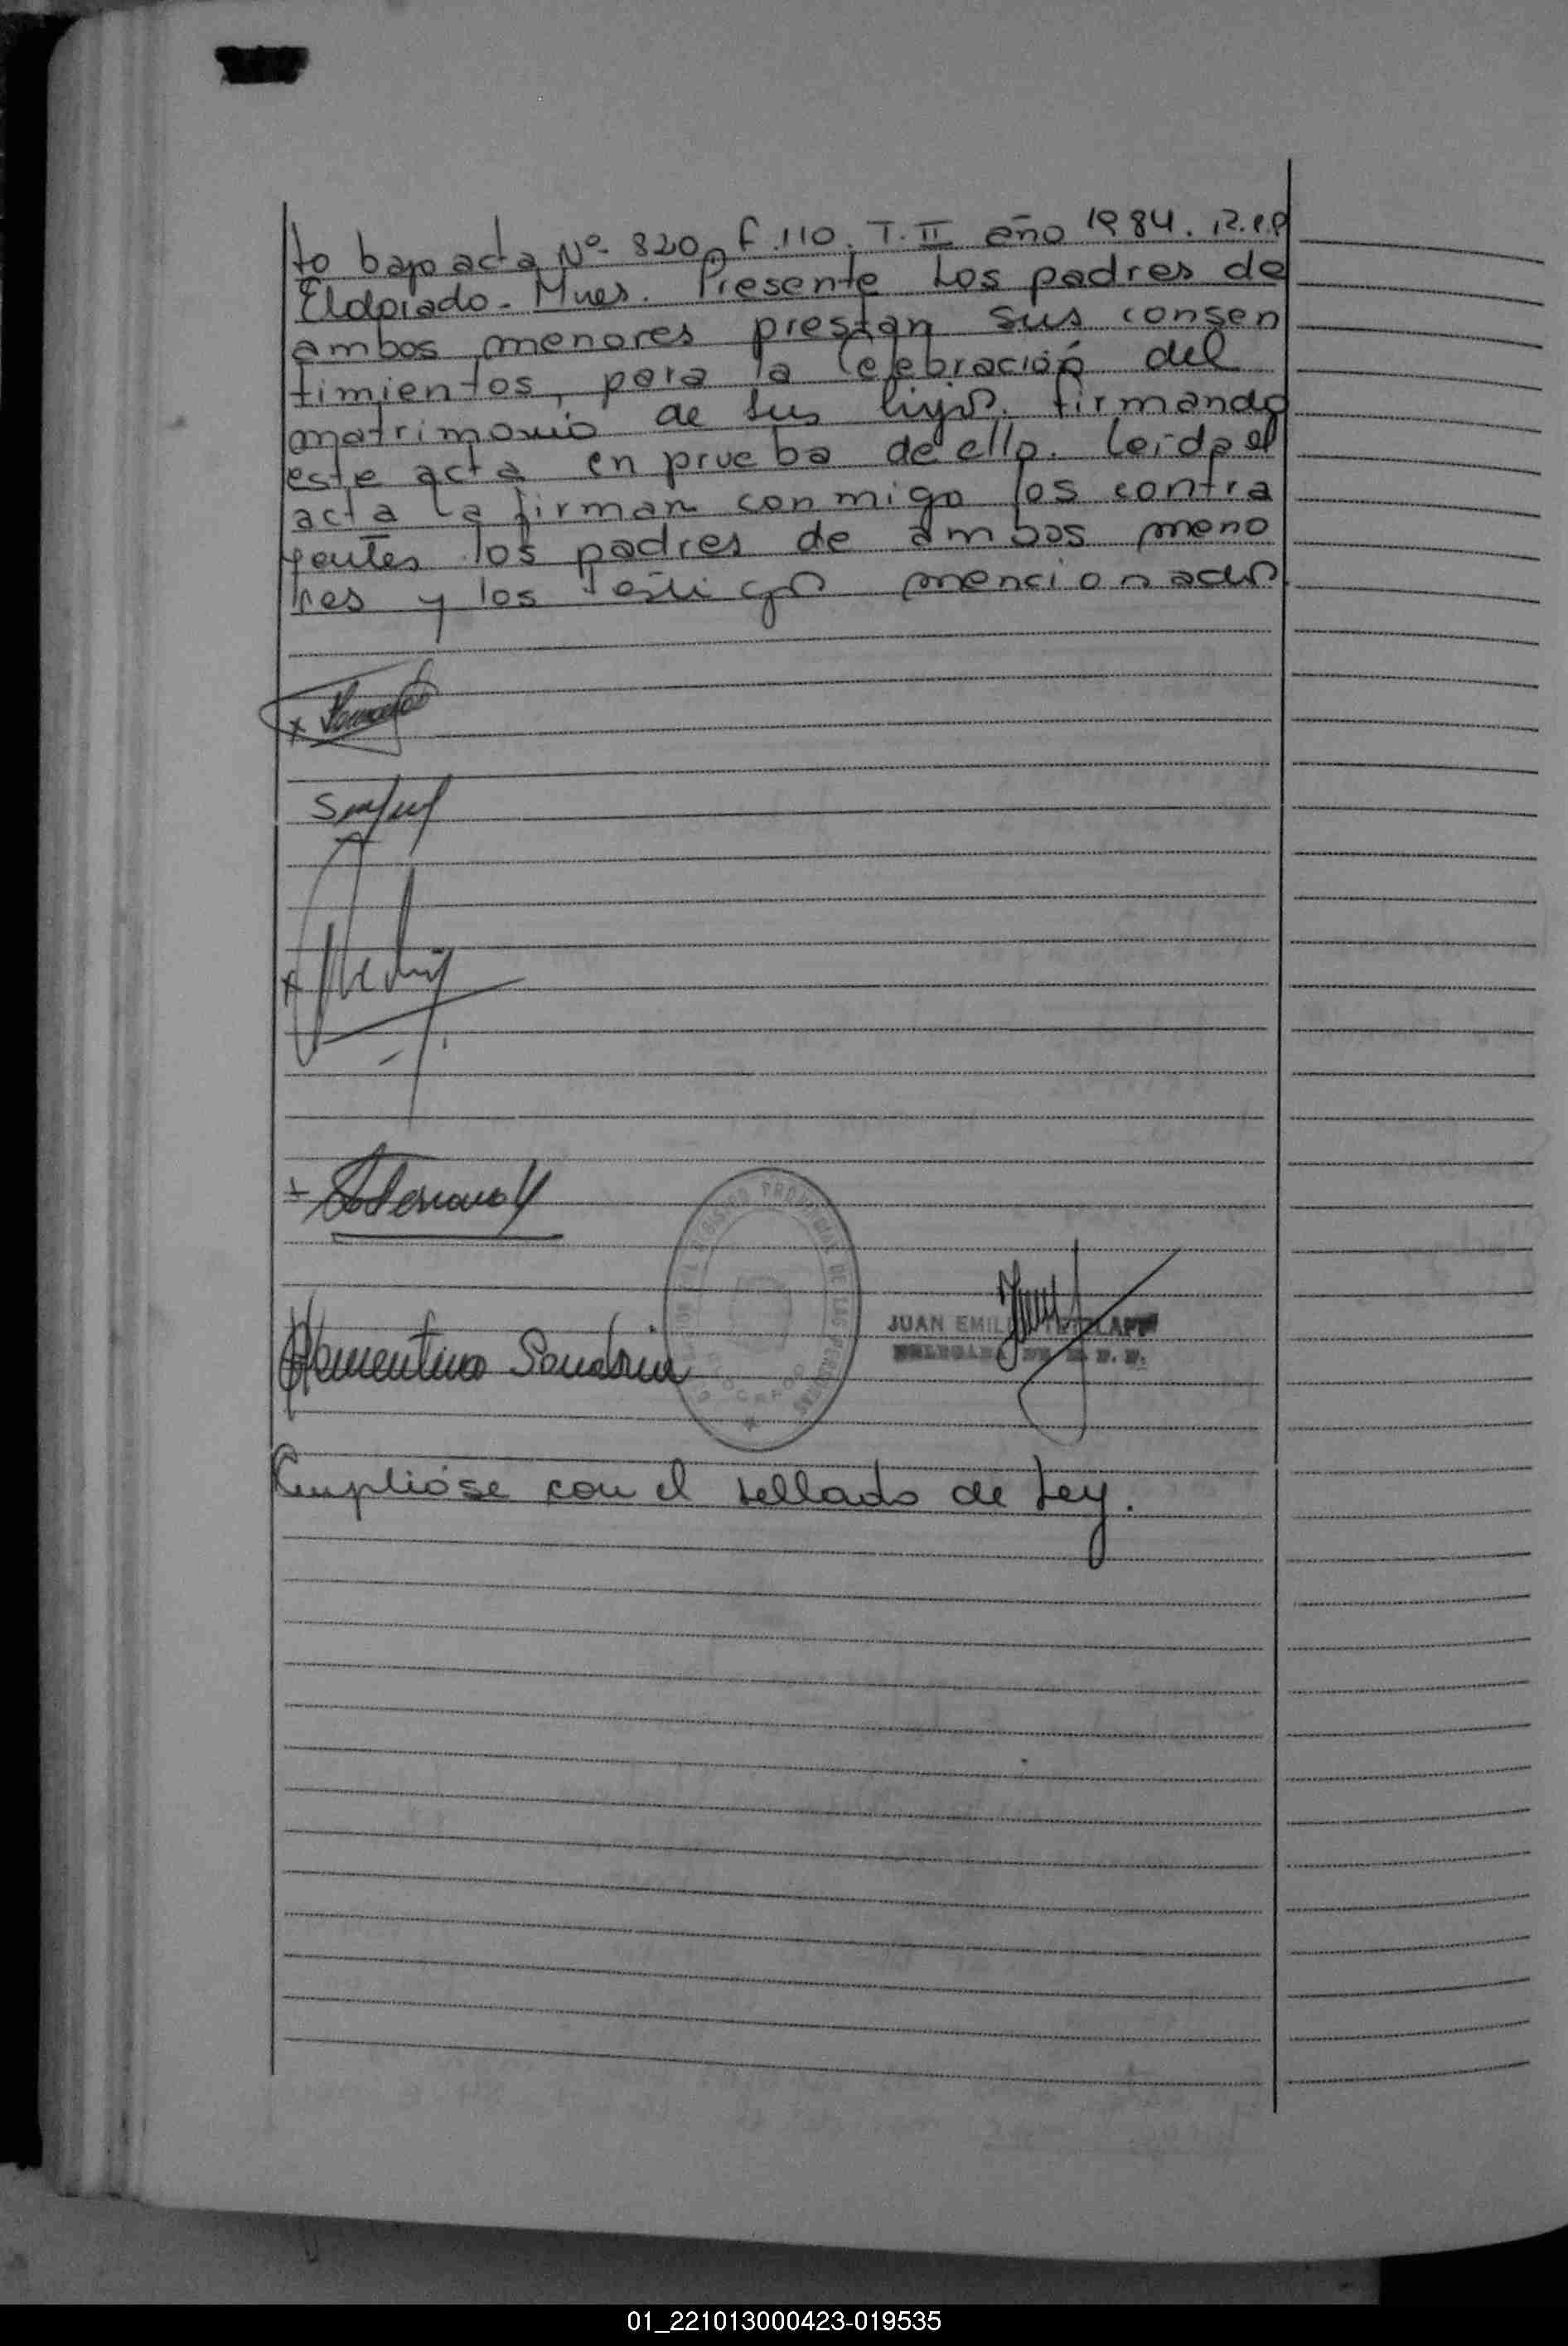 to bajo acta Nº 820, f.110. T. II año 1984. R.P.P
Eldorado - Mnes. Presente Los padres de
ambos menores prestan sus consen
timientos, para la celebración del
matrimonio de sus hijos. firmando
este acta en prueba de ello. Leida el
acta la firman conmigo los contra
yentes los padres de ambos meno
res y los testigos mencionados.
REGISTRO PROVINCIAL DE LAS PERSONAS
JUAN EMILI
Clementino Sanabria
Cumplióse con el sellado de Ley.
01_221013000423-019535